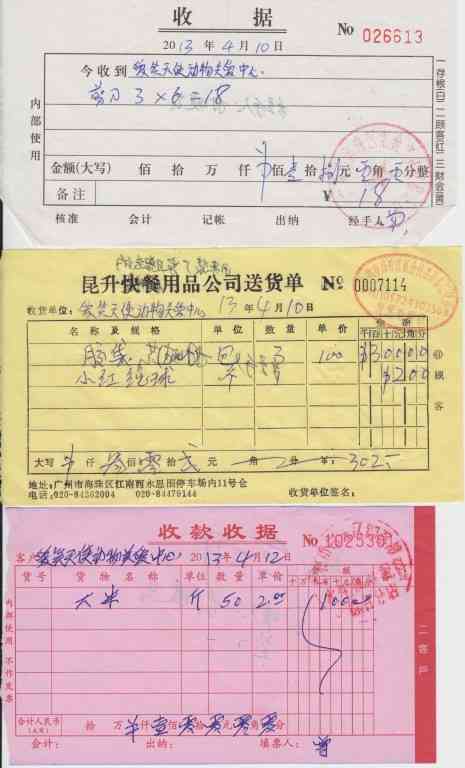 收 据
No 026613
2013 年 4 月 10 日
今收到 天使动物 中心
剪刀 3×6元=18
内部使用
一存根(白) 二顾客(红) 三财会(黄)
金额(大写) 佰 拾 万 仟 佰壹拾捌元零角零分整
备注 ¥ 18
核准 会计 记帐 出纳 经手人
昆升快餐用品公司送货单 No 0007114
收货单位: 天使动物 中心 13 年 4 月 10 日
名 称 及 规 格 单 位 数 量 单 价
胶袋 3 100 30000
小红 球 200
顾客
大写 仟叁佰零拾贰元 角 分 ¥: 302
地址:广州市海珠区江南西永思围停车场内11号仓
电话:020-84362004 020-84476144 收货单位签名:
收 款 收 据 No 1025391
客户 天使动物 中心 2013 年 4 月 12 日
货号 货 物 名 称 单位 数量 单价
大米 斤 50 2.00 100
内部使用 不作发票
合计人民币(大写) 拾 万 仟壹佰零拾零元零角零分
会计: 出纳: 填票人: